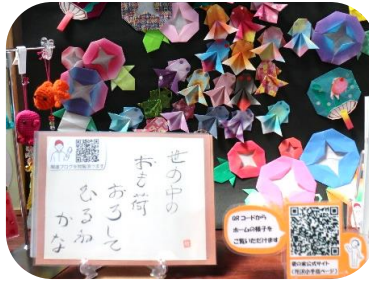 世の中の
おも荷
おろして
むるね
かな
QRコードから
ホームの様子を
ご覧いただけます
愛の家公式サイト